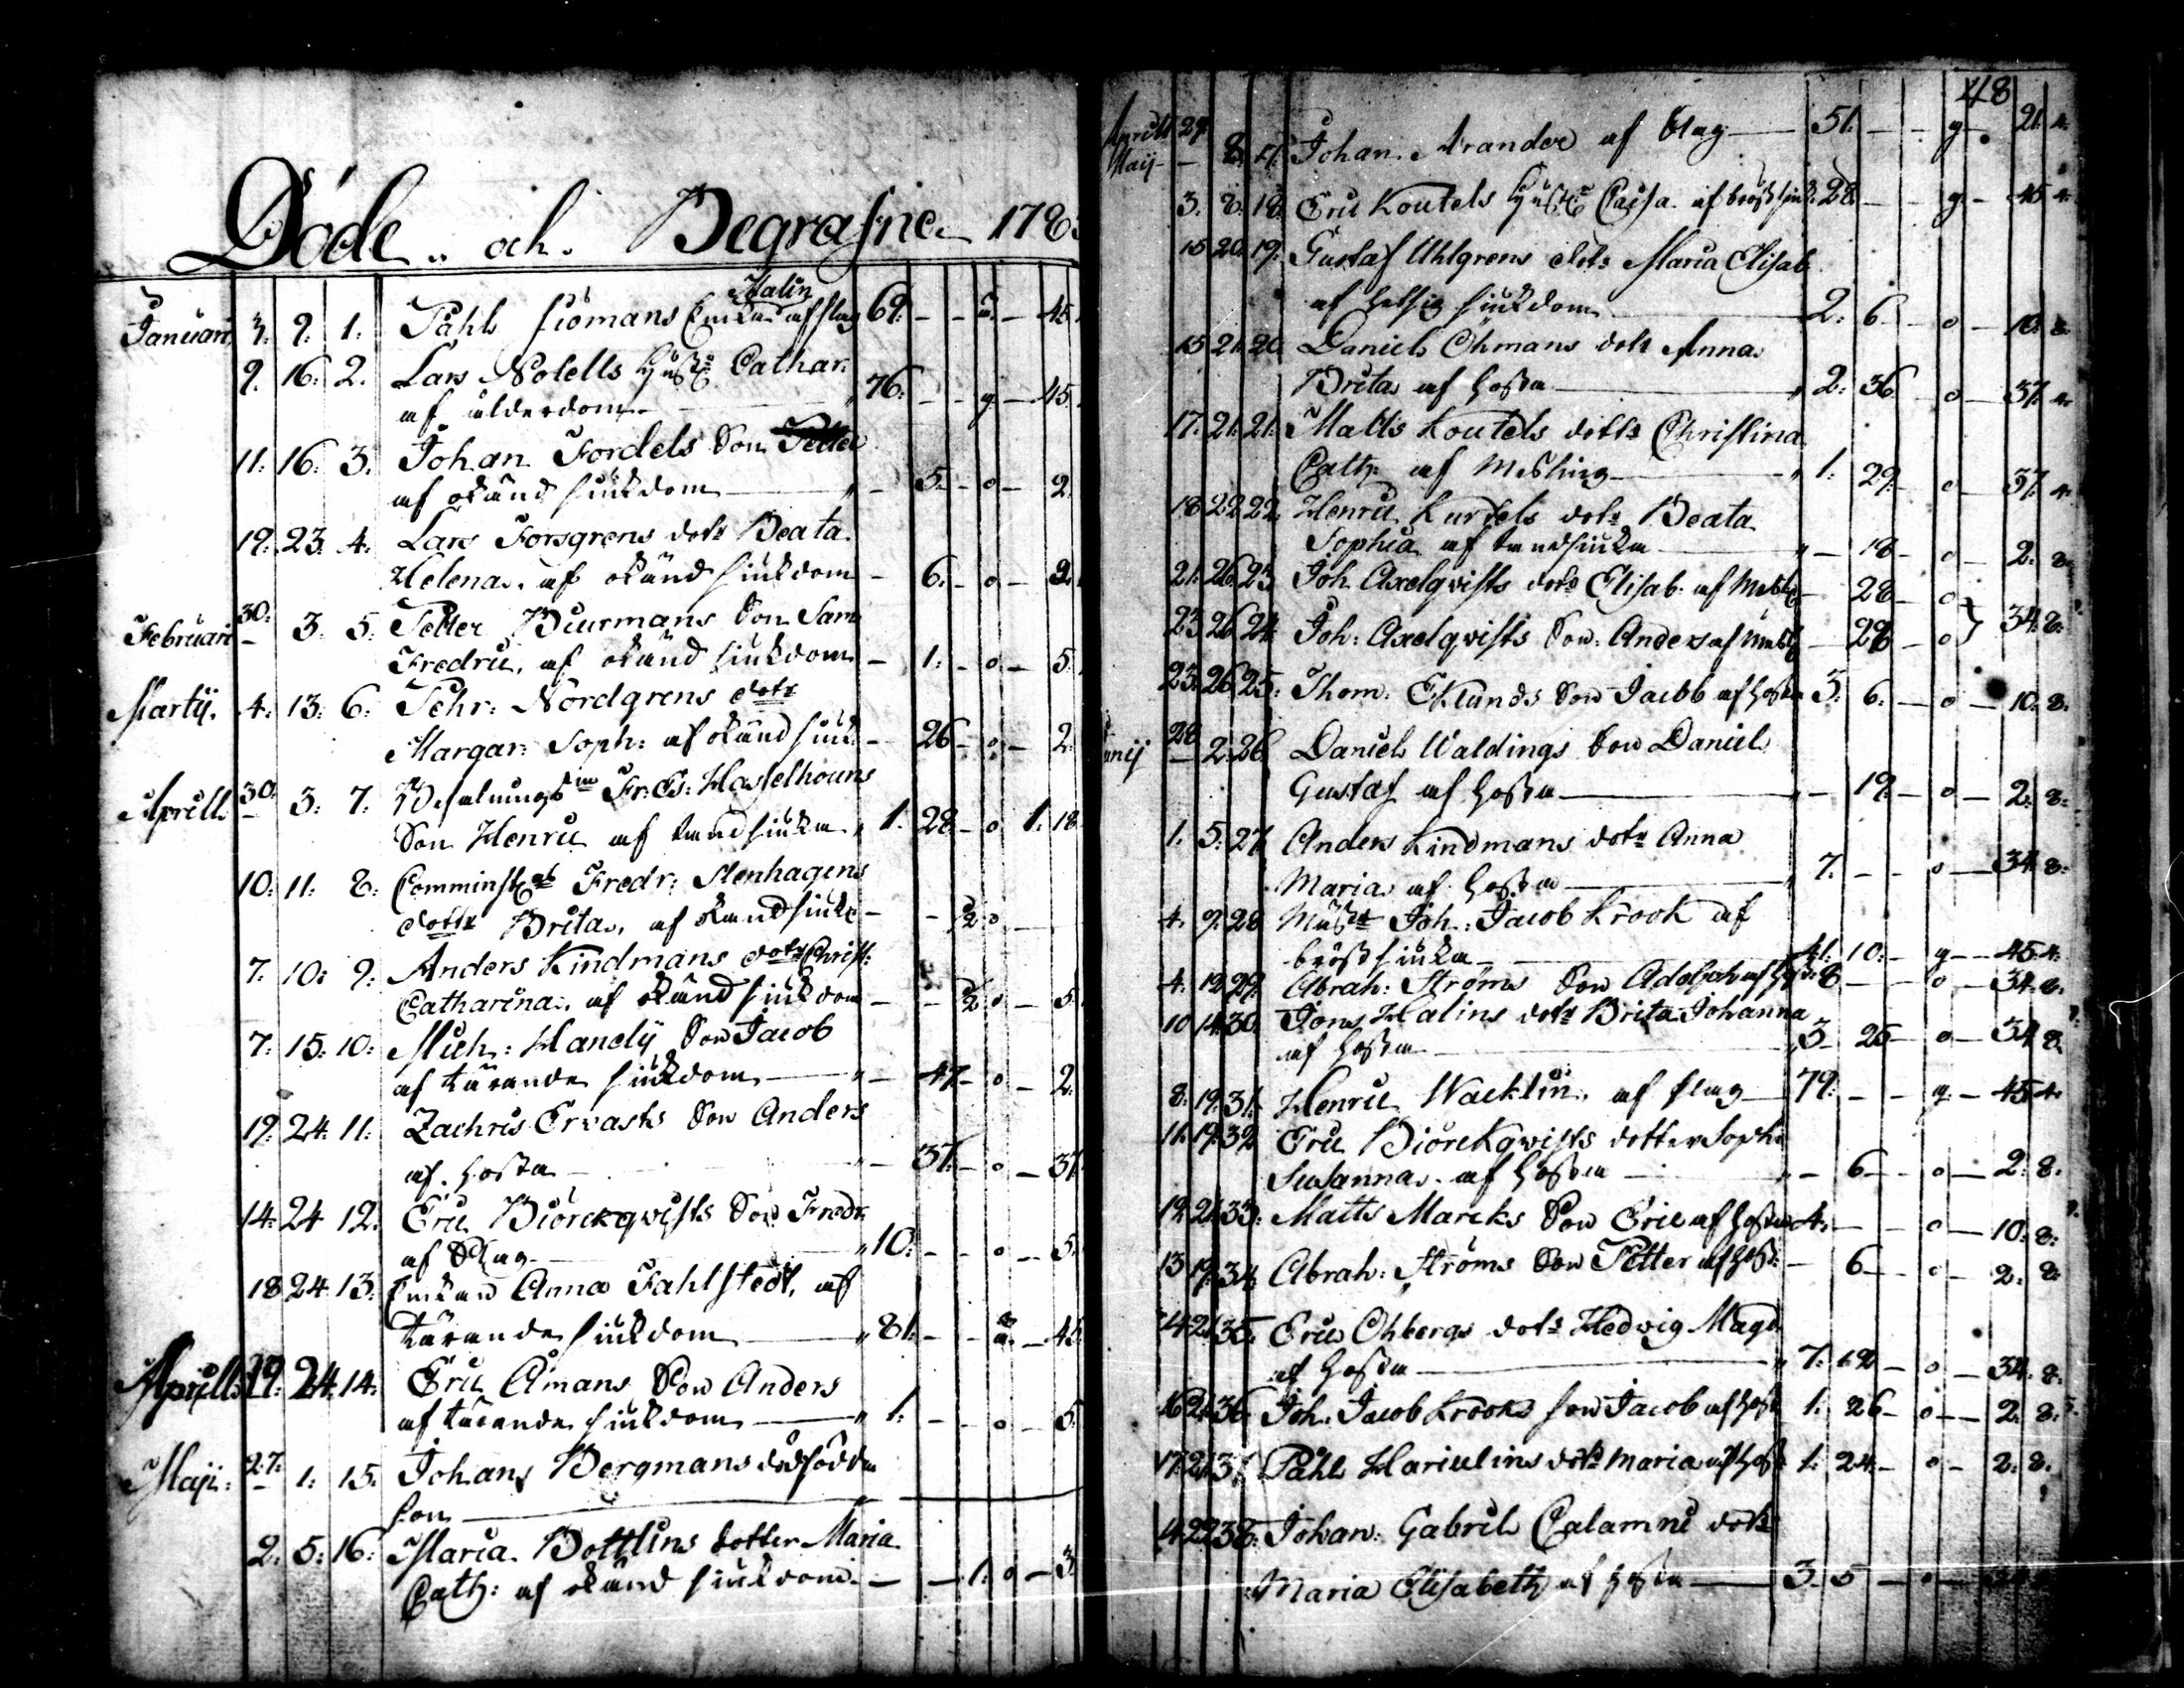 Döde och Begrafne 1783
Malin
Januari 3. 9. 1. Påhl Siömans Enka af slag 69. — — ä. — 45.
9. 16. 2. Lars Nolells Hust: Cathar.
af ålderdom — 76. — — g — 45.
11. 16. 3. Johan Fordels Son Petter
af okänd siukdom — „ — 5. — o — 2.
19. 23. 4. Lars Forsgrens dotr Beata
Helena, af okänd siukdom — 6. — o — 2.
30.
Februari — 3. 5. Petter Biurmans Son Sam
Fredric, af okänd siukdom — 1. — o — 5.
Martij. 4. 13. 6. Pehr: Nordgrens dotr
Margar: Soph: af okänd siukd — 26 — o — 2.
30.
Aprill — 3. 7. Fr: Es: Hasselhouns
Son Henric af tandsiuka „ 1. 28 — o 1. 18
10. 11. 8. Fredr: Stenhagens
dottr Brita, af — — ½ o —
7. 10. 9. Anders Kindmans dotr Christ:
Catharina, af okänd siukdom — — ½ o — 5.
7. 15. 10. Mich: Hanelij Son Jacob
af tärande siukdom — „ — 47 — o — 2.
19. 24. 11. Zachris Ervasts Son Anders
af hosta — „ — 37. — o — 37.
14. 24 12. Eric Biörckqwists Son Fredr
af Slag — „ 10. — — o — 5.
18 24 13. Enkan Anna Fahlstedt, af
tärande siukdom — „ 81. — — ä. — 45.
Aprill 19. 24. 14. Eric Åmans Son Anders
af tärande siukdom — „ 1. — — o — 5.
27.
Maji: — 1. 15. Johans Bergmans dödfödde
son —
2. 5. 16. Maria Bottlins dotter Maria
Cath: af okänd siukdom. — — 1. o — 3.
48
Aprill 29
Maij — 8. 17. Johan Arander af Slag — 51. — — g — 21. 4.
3. 8. 18. Eric Koutels Hust: Caisa af bröstsiuk: 28. — — g — 45 4.
15 20. 19. Gustaf Uhlgrens dotr Maria Elisab
af siukdom — 2. 6 — o — 10. 8.
15 21. 20. Daniels Öhmans dotr Anna
Brita af hosta — „ 2. 36 — o — 37. 4.
17. 21. 21. Matts Koutels dottr Christina
Cath: af Meshing — „ 1. 29. — o — 37. 4.
18 22 22. Henric Kurtels dotr Beata
Sophia af tandsiuka — „ — 18 — o — 2. 8.
21. 26. 23. Joh. Axelqvists dotr Elisab. af — 28 — o
23 26 24. Joh: Axelqvists Son: Anders af — 28 — o } 34. 8.
23. 26. 25. Thom: Eklunds Son Jacob af hosta 3. 6. — o — 10. 8.
28
Junij — 2. 26. Daniels Waldings Son Daniel
Gustaf af hosta — „ — 19. — o — 2. 8.
1. 5. 27. Anders Kindmans dotr Anna
Maria af hosta — „ 7. — — o — 34. 8.
4. 9. 28 Joh: Jacob Krook af
bröstsiuka — 41. 10. — g — 45. 4.
4. 12 29. Abrah: Ströms Son Adolph af hosta 8. — — o — 34. 8.
10 14. 30. Jons Halins dotr Brita Johanna
af hosta — „ 3 — 25 — o — 34 8.
8. 19. 31. Henric Wacklin, af slag — 79. — — g. — 45. 4.
11. 19. 32 Eric Biörckqwists dotter Soph:
Susanna. af hosta — „ — 6 — o — 2. 8.
12. 21. 33. Matts Marcks Son Eric af hosta 4. — — o — 10. 8.
13 19. 34. Abrah: Ströms Son Petter af host: — 6 — o — 2. 8.
14 21. 35. Eric Ohbergs dotr Hedvig Magd
af hosta — „ 7. 12 — o — 34. 8.
16 21. 36. Joh. Jacob Krooks son Jacob af host 1. 26 — o — 2. 8.
17. 21. 37. Påhls Hariulins dotr Maria af host 1. 24. — o — 2. 8.
14. 22 38. Johan: Gabriels Calamni dotr
Maria Elisabeth af hosta — 3. 5 — o —